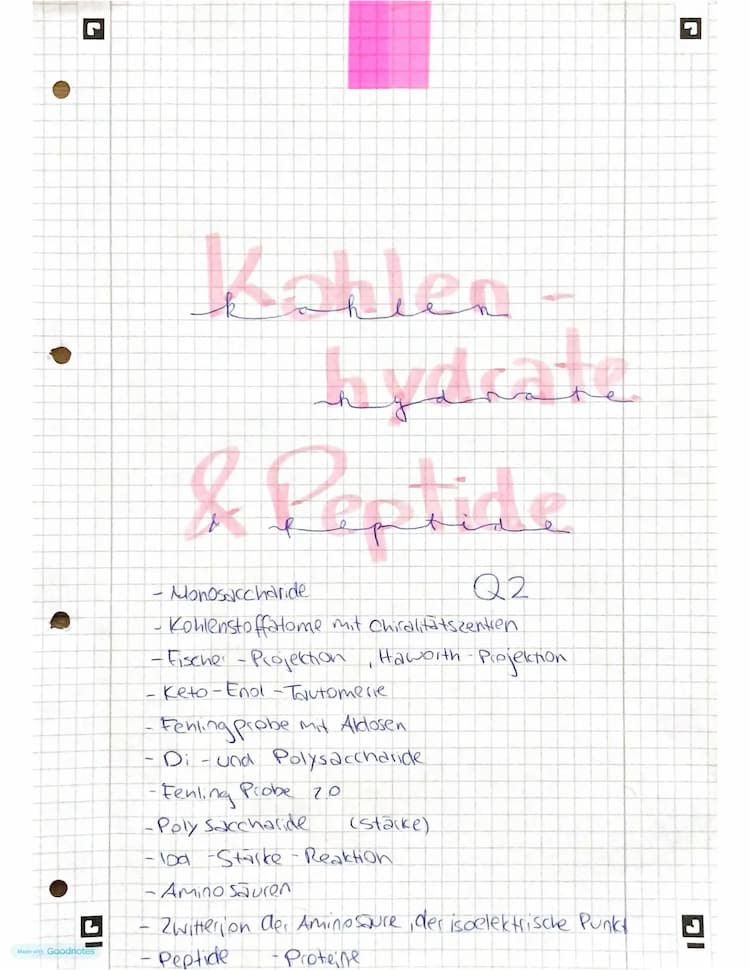 Kohlen-
kohlen
hydrate
hydrate
& Peptide
& Peptide
Q2
- Monosaccharide
- Kohlenstoffatome mit Chiralitätszentren
- Fischer-Projektion, Haworth-Projektion
- Keto-Enol-Tautomerie
- Fehlingprobe mit Aldosen
- Di-und Polysaccharide
- Fehling Probe 2.0
- Polysaccharide (Stärke)
- Iod-Stärke-Reaktion
- Aminosäuren
- Zwitterion der Aminosäure, der isoelektrische Punkt
- Peptide - Proteine
Made with Goodnotes